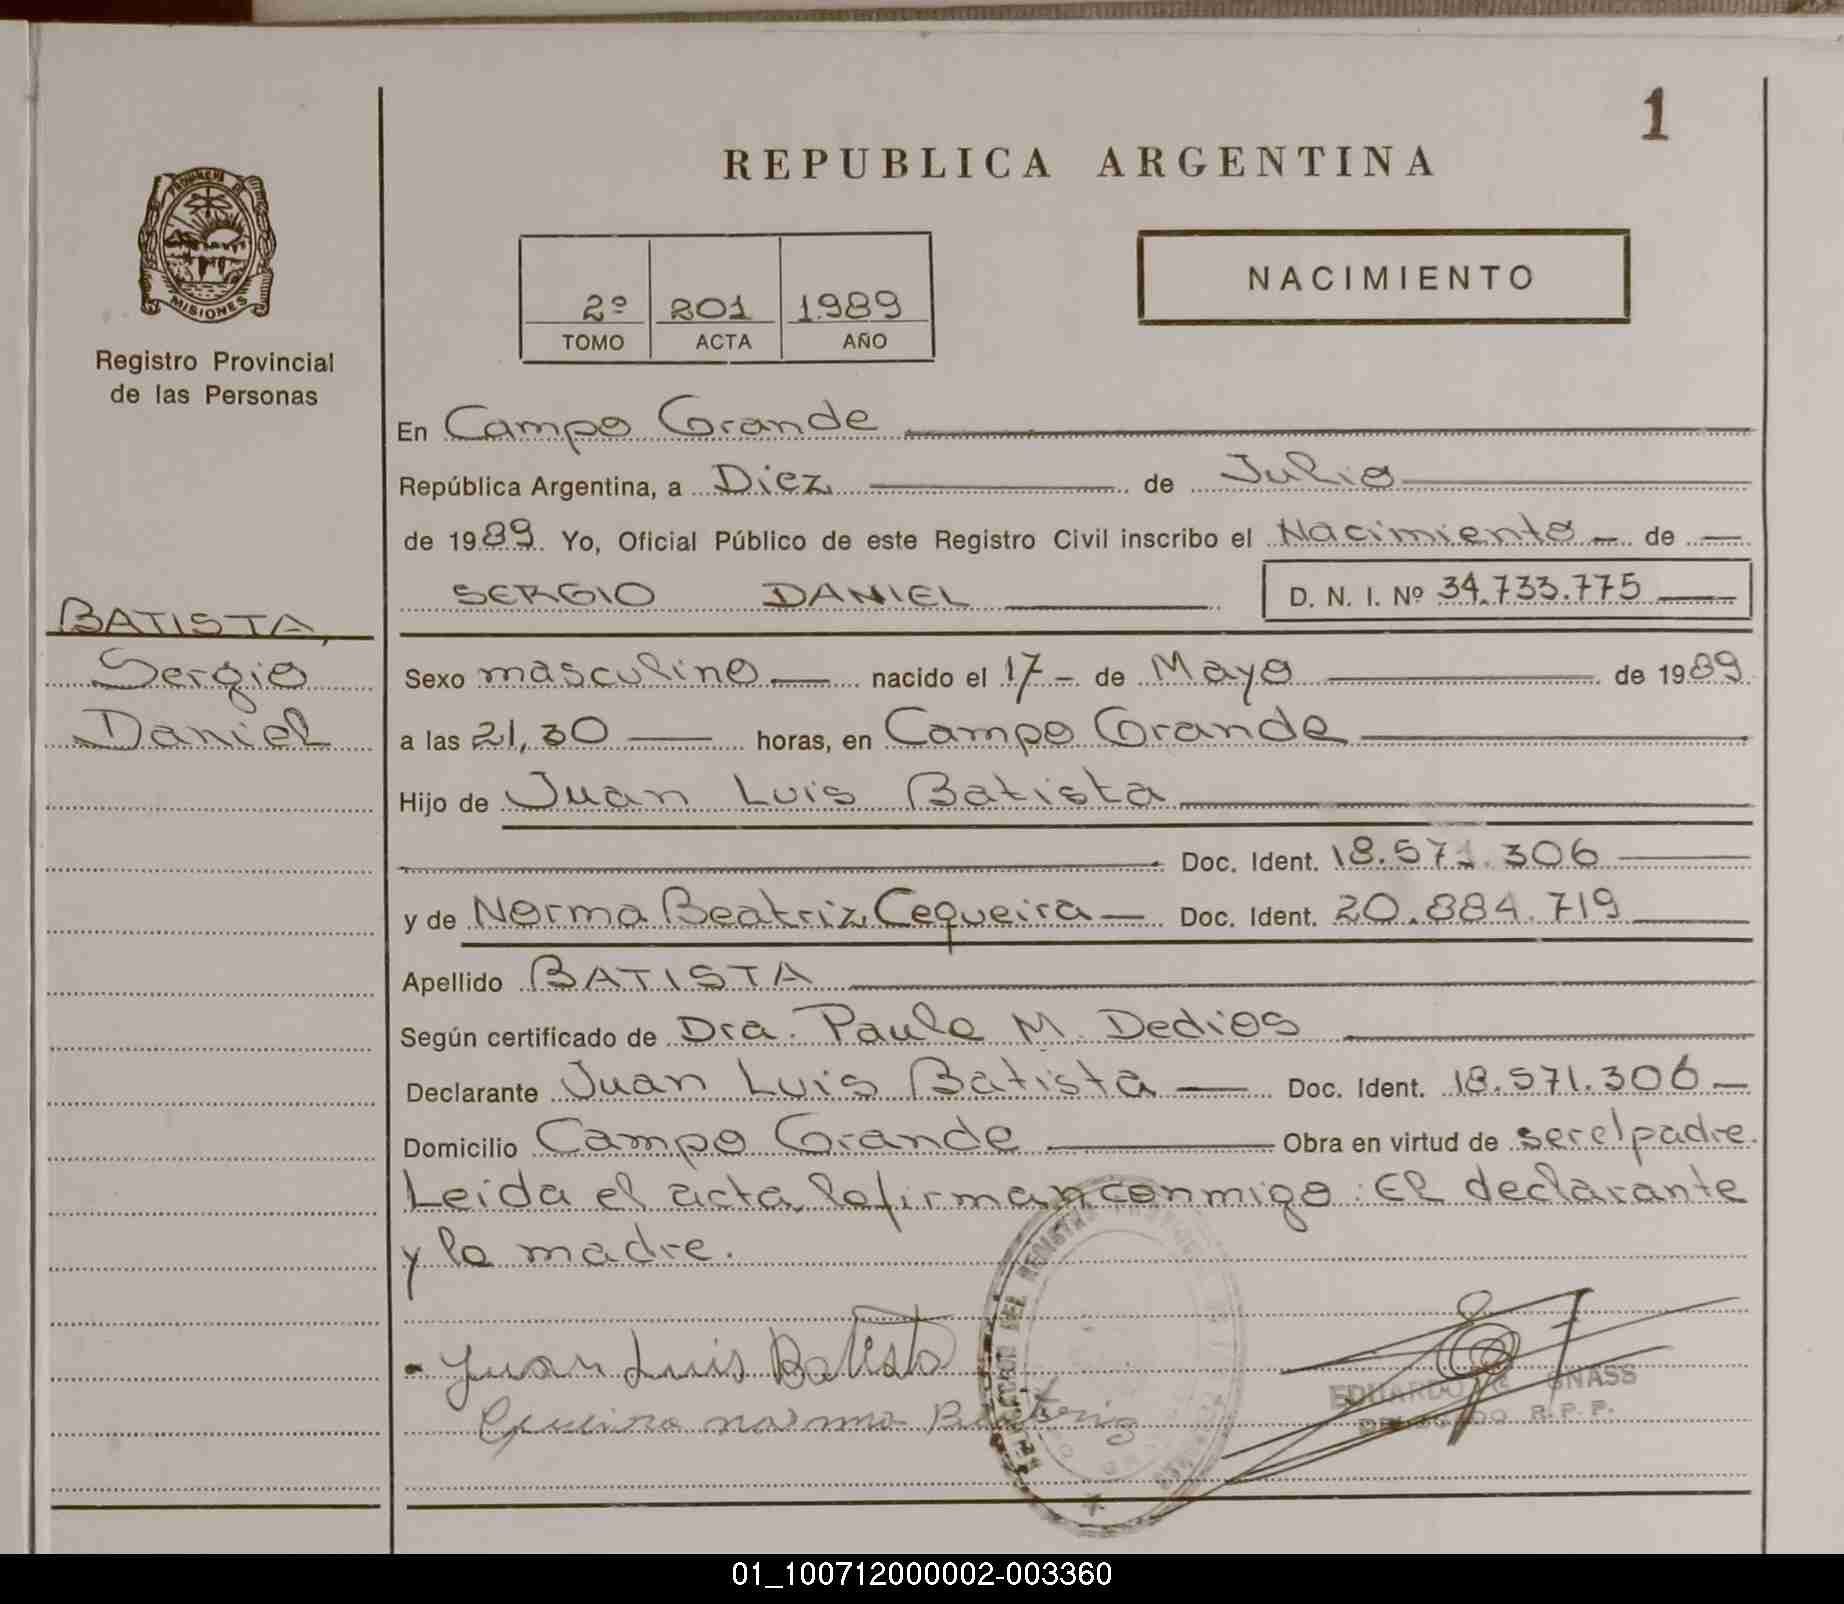 1
REPUBLICA ARGENTINA
PROVINCIA DE
MISIONES
Registro Provincial
de las Personas
NACIMIENTO
2º 201 1989
TOMO ACTA AÑO
En Campo Grande
República Argentina, a Diez de Julio
de 1989 Yo, Oficial Público de este Registro Civil inscribo el Nacimiento de
SERGIO DANIEL D. N. I. Nº 34.733.775
BATISTA,
Sergio
Daniel
Sexo masculino nacido el 17 de Mayo de 1989
a las 21,30 horas, en Campo Grande
Hijo de Juan Luis Batista
Doc. Ident. 18.571.306
y de Norma Beatriz Cequeira Doc. Ident. 20.884.719
Apellido BATISTA
Según certificado de Dra. Paula M. Dedios
Declarante Juan Luis Batista Doc. Ident. 18.571.306
Domicilio Campo Grande Obra en virtud de ser el padre.
Leida el acta, la firman conmigo: El declarante
y la madre.
Juan Luis Batista
norma
DEL REGISTRO
EDUARDO GNASS
DELEGADO R. P. P.
01_100712000002-003360